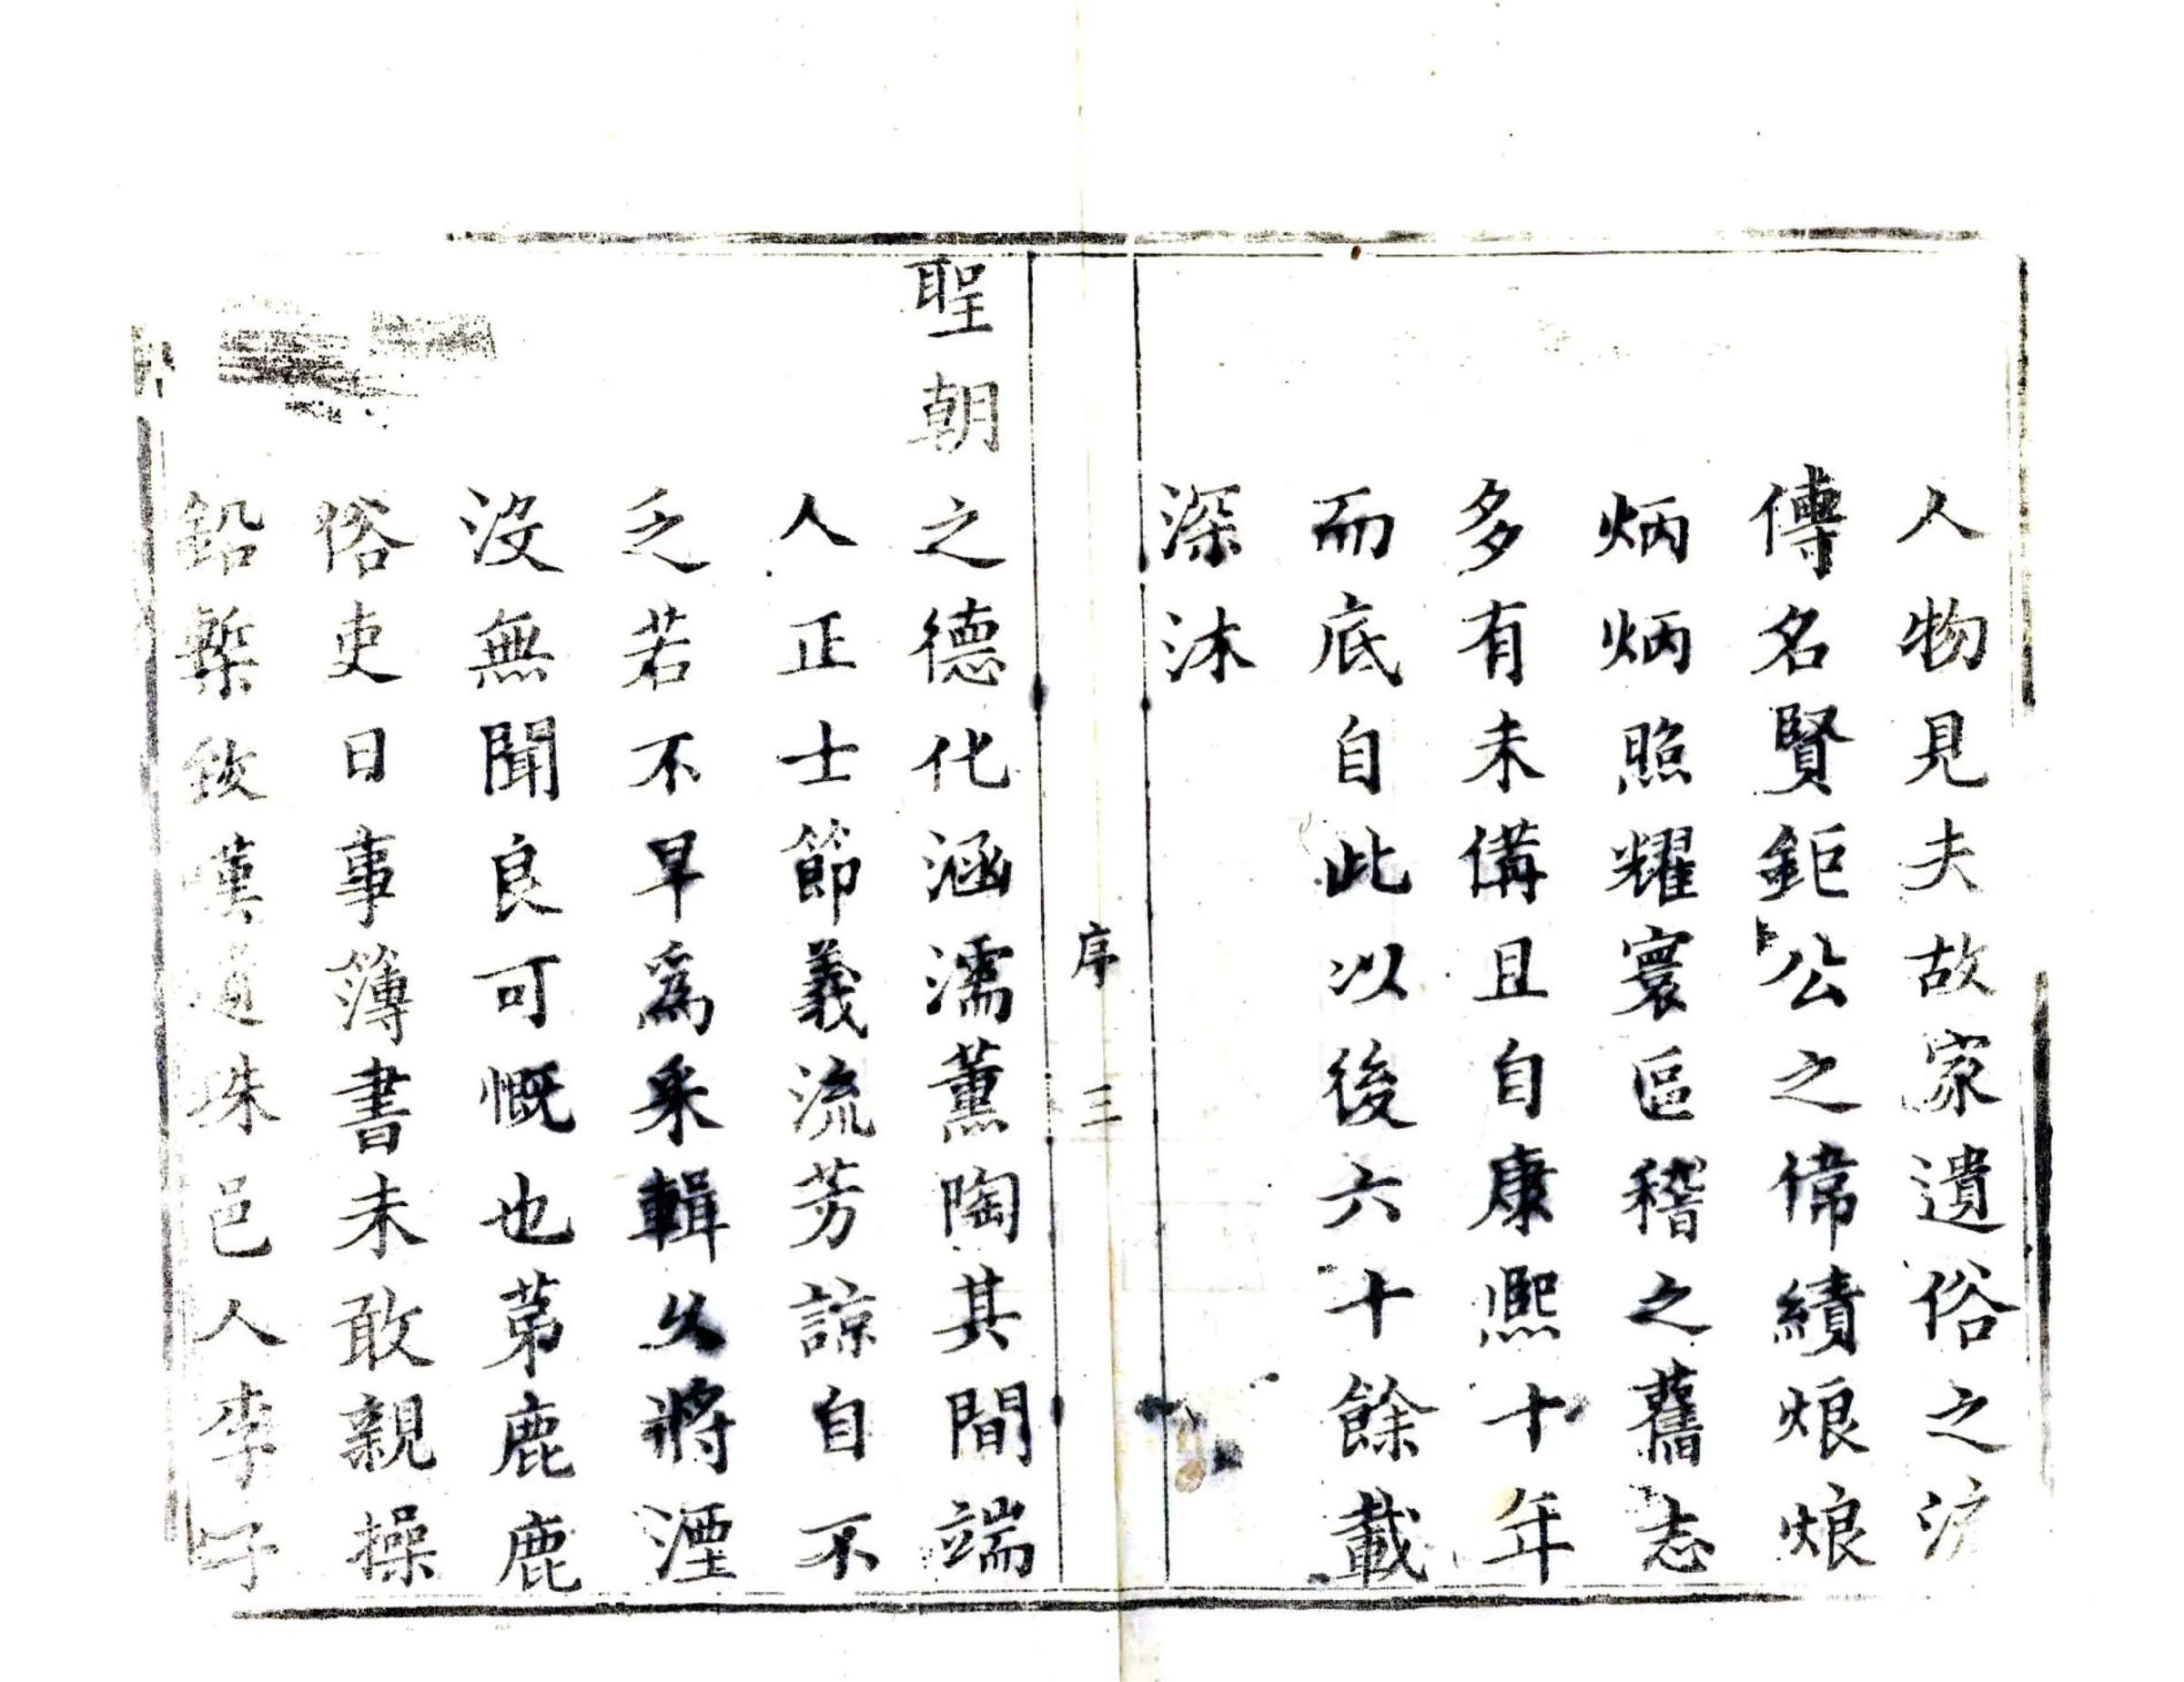 人物見夫故家遺俗之
傳名賢鉅公之偉績烺烺
炳炳照耀寰區稽之舊志
多有未俻且自康熙十年
而底自此以後六十餘載
深沐
序 三
聖朝之德化涵濡薰陶其間端
人正士節義流芳諒自不
乏若不早爲采輯久將湮
沒無聞良可慨也苐鹿鹿
俗吏日事簿書未敢親操
鉛槧致嘆遺珠邑人李子